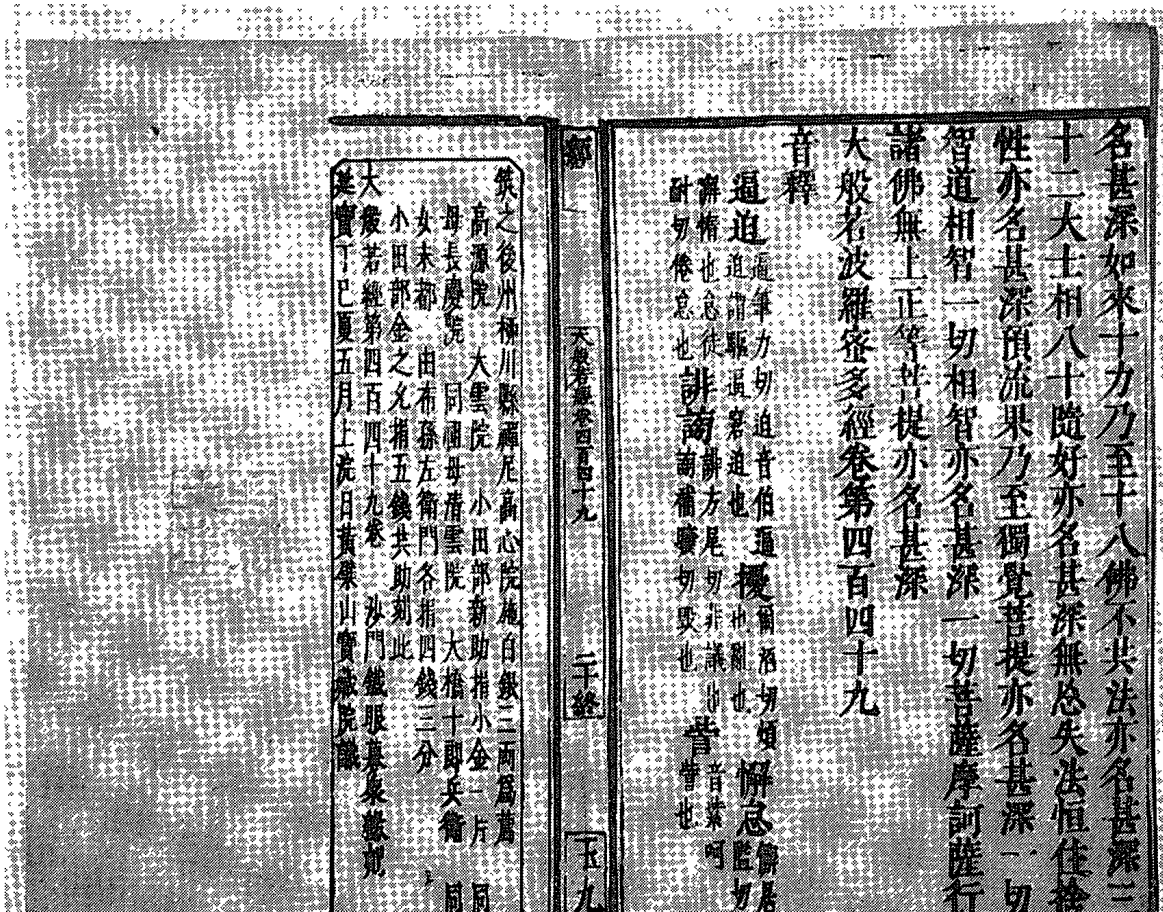 名甚深如來十力乃至十八佛不共法亦名甚深三
十二大士相八十隨好亦名甚深無忘失法恒住捨
性亦名甚深預流果乃至獨覺菩提亦名甚深一切
智道相智一切相智亦名甚深一切菩薩摩訶薩行
諸佛無上正等菩提亦名甚深
大般若波羅蜜多經卷第四百四十九
音釋
逼迫
逼筆力切迫音伯逼
迫謂驅逼窘迫也
擾
爾沼切煩
也亂也
懈怠
懈居
隘切
懈惰也怠徒
耐切倦怠也
誹謗
誹方尾切非議也
謗補曠切毀也
呰
音紫呵
呰也
大般若經卷四百四十九
二十終
玉九
筑之後州
川縣禪尼高心院施白銀三兩爲薦
高源院 大雲院 小田部新助捐小金一片 同
母長慶院 同祖母清雲院 大橋十郎兵衛 同
女末都 由布孫左衛門各捐四錢三分
小田部金之允捐五錢共助刻此
大般若經第四百四十九卷 沙門鐵眼募衆緣刻
延寶丁巳夏五月上浣日黃檗山寶藏院識